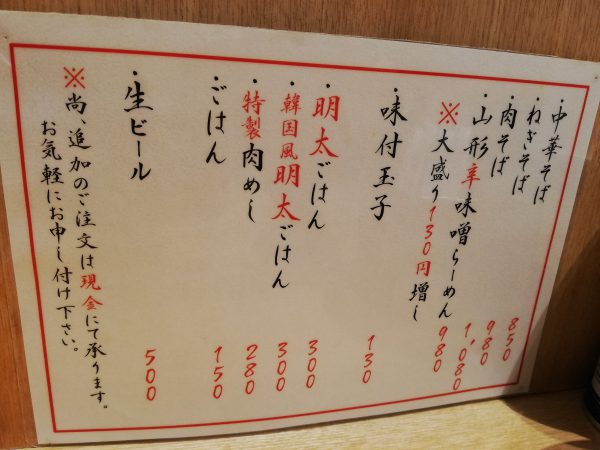 ・中華そば 850
・ねぎそば 980
・肉そば 1,080
・山形辛味噌らーめん 980
※大盛り130円増し
・味付玉子 130
・明太ごはん 300
・韓国風明太ごはん 300
・特製肉めし 280
・ごはん 150
・生ビール 500
※尚、追加のご注文は現金にて承ります。
お気軽にお申し付け下さい。